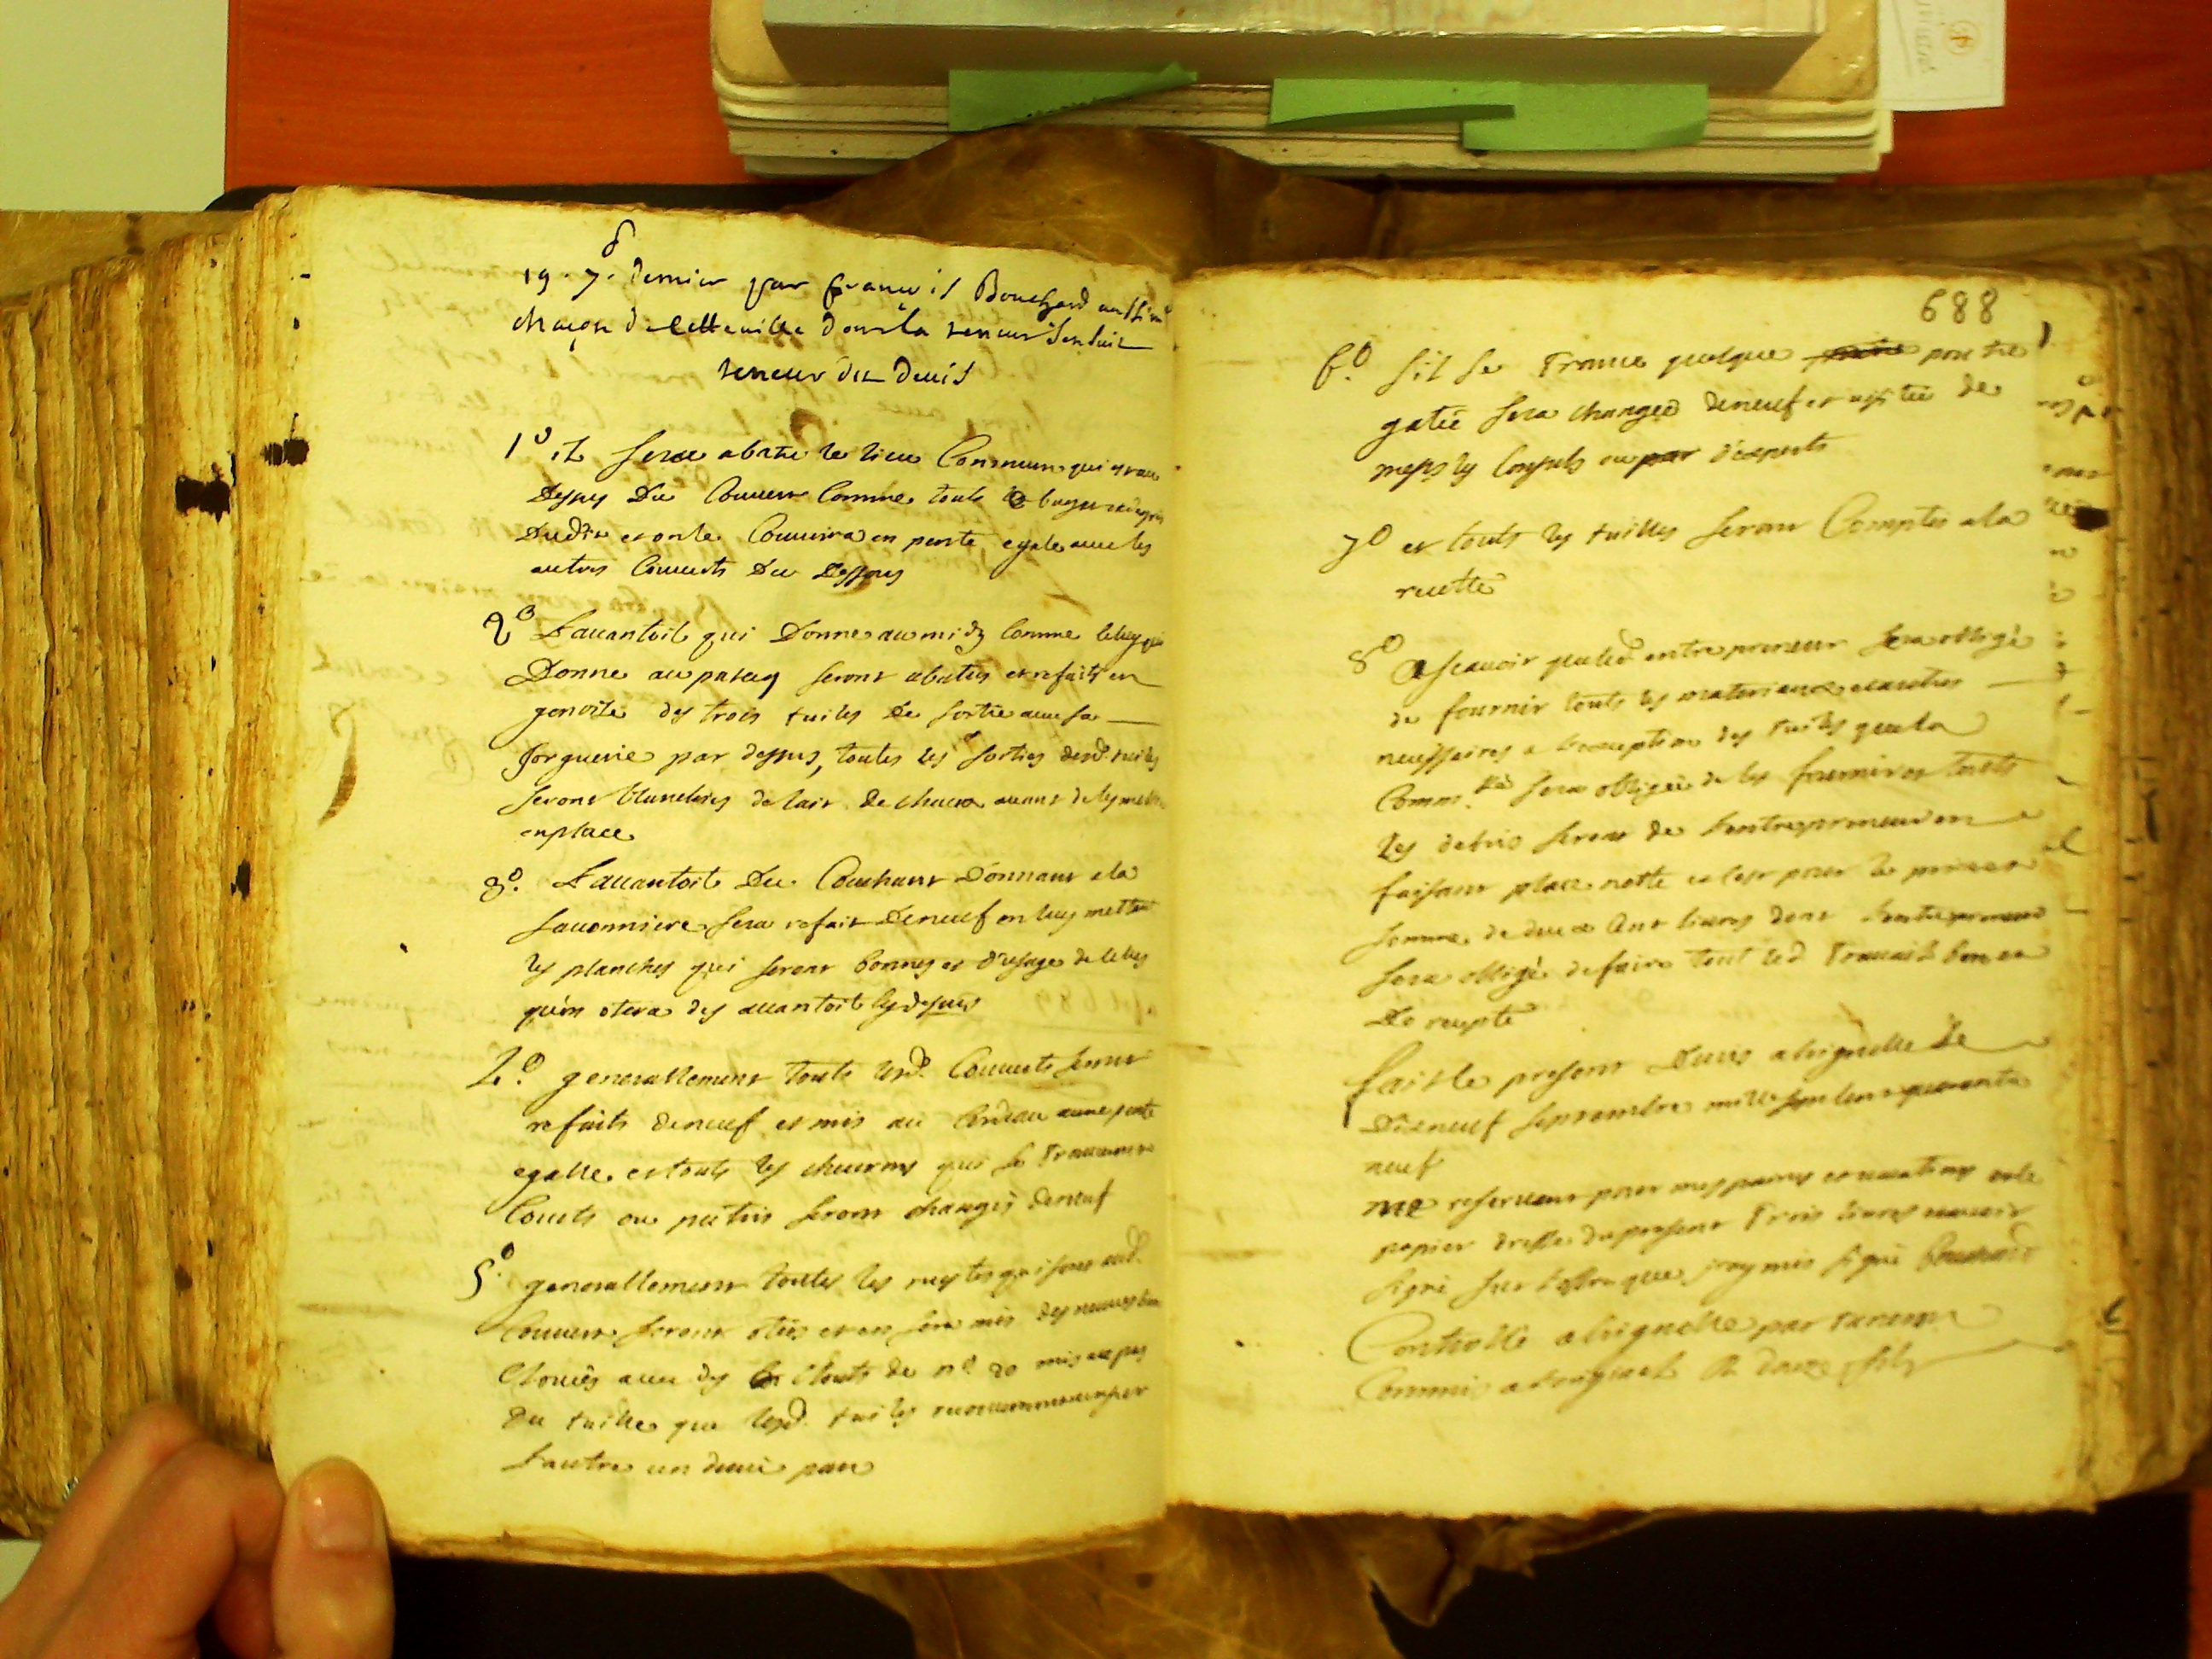 19. 7.b dernier par francois Bouchard
chaçon de cette ville dont la teneur sensuit
teneur du devis
1º il sera abatu le lieu Commun qui
dessus du Couvert Comme toute
dudit et on le Couvrira en pente egale avec les
autres Couverts du dessous
2º L'avantoit qui donne au midy Comme celluy qui
donne au seront abatus et refaits en
genoise des trois tuiles de sortie avec sa
forguerie par dessus, toutes les sorties desd. tuiles
seront blanchies de lait de chaux avant de les mettre
en place
3º. L'avantoit du Couchant donnant a la
savonniere sera refait de neuf en luy mettant
les planches qui seront bonnes et d'usage de celles
qu'on otera des avantoit
4º. generallement touts lesd. Couverts seront
refaits de neuf et mis au Cordeau a une pente
egalle et touts les chevrons qui se trouveront
Courts ou poutris seront changés de neuf
5º. generallement toutes les qui sont aud.
Couvert seront otés et on sera mis des neuves
Cloués avec des Clouts de nº 20
du tuille que lesd. tuiles
L'autre un demi pan
688
6º. s'il se trouve quelque poutre
gatée sera changée de neuf
messrs les Consuls ou d'experts
7º et touts les tuilles seront Comptés a la
recette
8º a scavoir que led entrepreneur sera obligé
de fournir touts les materiaux et autres
necessaires a l'exception des tuiles que la
Comm.té sera obligée de les fournir et touts
les debris seront de l'entrepreneur en
faisant place nette et c'est pour le prix et
somme de deux Cent livres dont l'entrepreneur
sera obligé de faire tout led travail bon et
de recepte
fait le present devis a brignolle le
dixneuf septembre mille sept cens quarante
neuf
me reservant pour mes paines et vacations et le
papier dresse du present trois livres
signé sur l'offre que j'ay mis signé Bouchard
Controllé a brignolle par
Commis a l'original fils